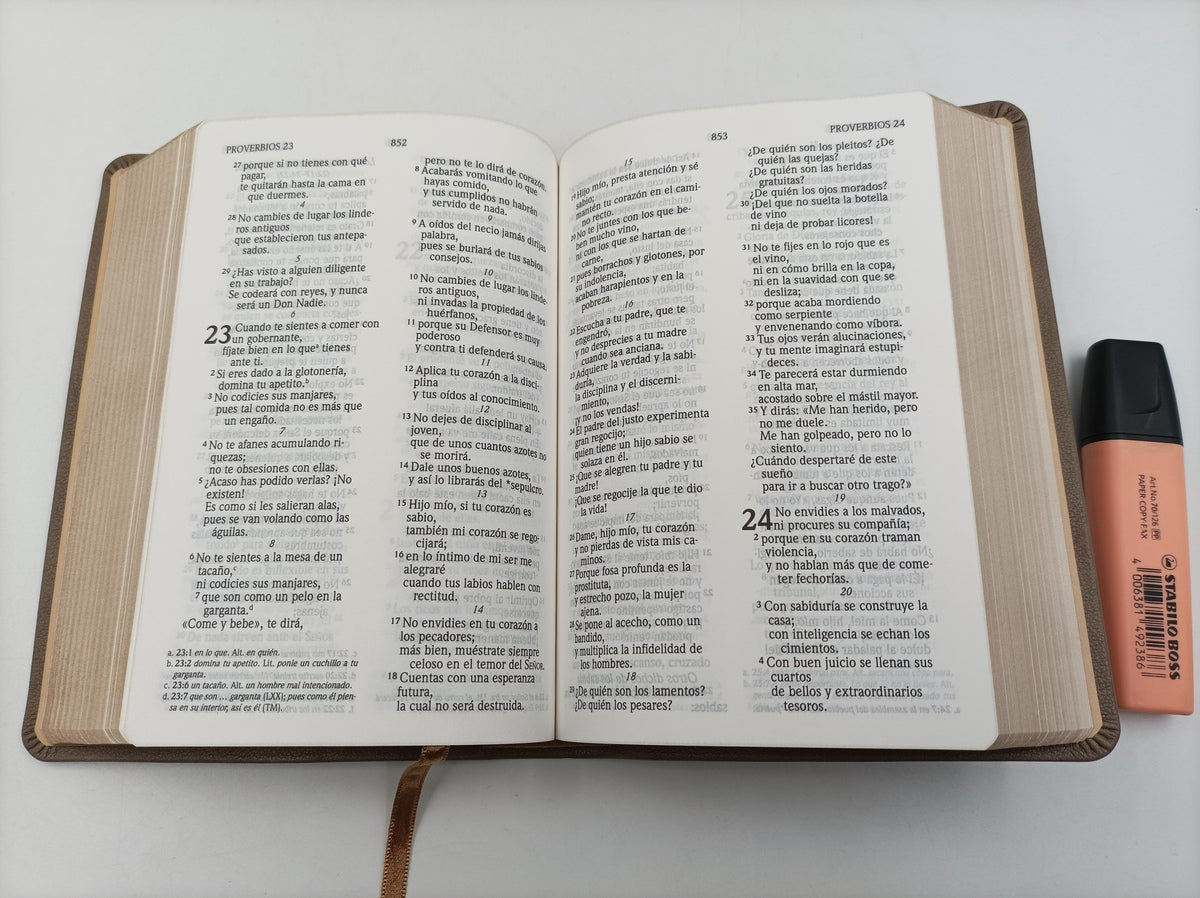 PROVERBIOS 23
852
27 porque si no tienes con qué
pagar,
te quitarán hasta la cama en
que duermes.
4
28 No cambies de lugar los linde-
ros antiguos
que establecieron tus antepa-
sados.
5
29 ¿Has visto a alguien diligente
en su trabajo?
Se codeará con reyes, y nunca
será un Don Nadie.
6
23 Cuando te sientes a comer con
un gobernante,
fíjate bien en lo que a tienes
ante ti.
2 Si eres dado a la glotonería,
domina tu apetito. b
3 No codicies sus manjares,
pues tal comida no es más que
un engaño.
7
4 No te afanes acumulando ri-
quezas;
no te obsesiones con ellas.
5 ¿Acaso has podido verlas? ¡No
existen!
Es como si les salieran alas,
pues se van volando como las
águilas.
8
6 No te sientes a la mesa de un
tacaño, c
ni codicies sus manjares,
7 que son como un pelo en la
garganta. d
«Come y bebe», te dirá,
a. 23:1 en lo que. Alt. en quién.
b. 23:2 domina tu apetito. Lit. ponle un cuchillo a tu
garganta.
c. 23:6 un tacaño. Alt. un hombre mal intencionado.
d. 23:7 que son ... garganta (LXX); pues como él pien-
sa en su interior, así es él (TM).
pero no te lo dirá de corazón.
8 Acabarás vomitando lo que
hayas comido,
y tus cumplidos no habrán
servido de nada.
9
9 A oídos del necio jamás dirijas
palabra,
pues se burlará de tus sabios
consejos.
10
10 No cambies de lugar los linde-
ros antiguos,
ni invadas la propiedad de los
huérfanos,
11 porque su Defensor es muy
poderoso
y contra ti defenderá su causa.
11
12 Aplica tu corazón a la disci-
plina
y tus oídos al conocimiento.
12
13 No dejes de disciplinar al
joven,
que de unos cuantos azotes no
se morirá.
14 Dale unos buenos azotes,
y así lo librarás del *sepulcro.
13
15 Hijo mío, si tu corazón es
sabio,
también mi corazón se rego-
cijará;
16 en lo íntimo de mi ser me
alegraré
cuando tus labios hablen con
rectitud.
14
17 No envidies en tu corazón a
los pecadores;
más bien, muéstrate siempre
celoso en el temor del Señor.
18 Cuentas con una esperanza
futura,
la cual no será destruida.
853
PROVERBIOS 24
15
19 Hijo mío, presta atención y sé
sabio;
mantén tu corazón en el cami-
no recto.
20 No te juntes con los que be-
ben mucho vino,
ni con los que se hartan de
carne,
21 pues borrachos y glotones, por
su indolencia,
acaban harapientos y en la
pobreza.
16
22 Escucha a tu padre, que te
engendró,
y no desprecies a tu madre
cuando sea anciana.
23 Adquiere la verdad y la sabi-
duría,
la disciplina y el discerni-
miento,
¡y no los vendas!
24 El padre del justo experimenta
gran regocijo;
quien tiene un hijo sabio se
solaza en él.
25 ¡Que se alegren tu padre y tu
madre!
¡Que se regocije la que te dio
la vida!
17
26 Dame, hijo mío, tu corazón
y no pierdas de vista mis ca-
minos.
27 Porque fosa profunda es la
prostituta,
y estrecho pozo, la mujer
ajena.
28 Se pone al acecho, como un
bandido,
y multiplica la infidelidad de
los hombres.
18
29 ¿De quién son los lamentos?
¿De quién los pesares?
¿De quién son los pleitos? ¿De
quién las quejas?
¿De quién son las heridas
gratuitas?
¿De quién los ojos morados?
30 ¡Del que no suelta la botella
de vino
ni deja de probar licores!
31 No te fijes en lo rojo que es
el vino,
ni en cómo brilla en la copa,
ni en la suavidad con que se
desliza;
32 porque acaba mordiendo
como serpiente
y envenenando como víbora.
33 Tus ojos verán alucinaciones,
y tu mente imaginará estupi-
deces.
34 Te parecerá estar durmiendo
en alta mar,
acostado sobre el mástil mayor.
35 Y dirás: «Me han herido, pero
no me duele.
Me han golpeado, pero no lo
siento.
¿Cuándo despertaré de este
sueño
para ir a buscar otro trago?»
19
24 No envidies a los malvados,
ni procures su compañía;
2 porque en su corazón traman
violencia,
y no hablan más que de come-
ter fechorías.
20
3 Con sabiduría se construye la
casa;
con inteligencia se echan los
cimientos.
4 Con buen juicio se llenan sus
cuartos
de bellos y extraordinarios
tesoros.
Art.No. 70/126 PP
PAPER·COPY·FAX
STABILO BOSS
4 006381 492386